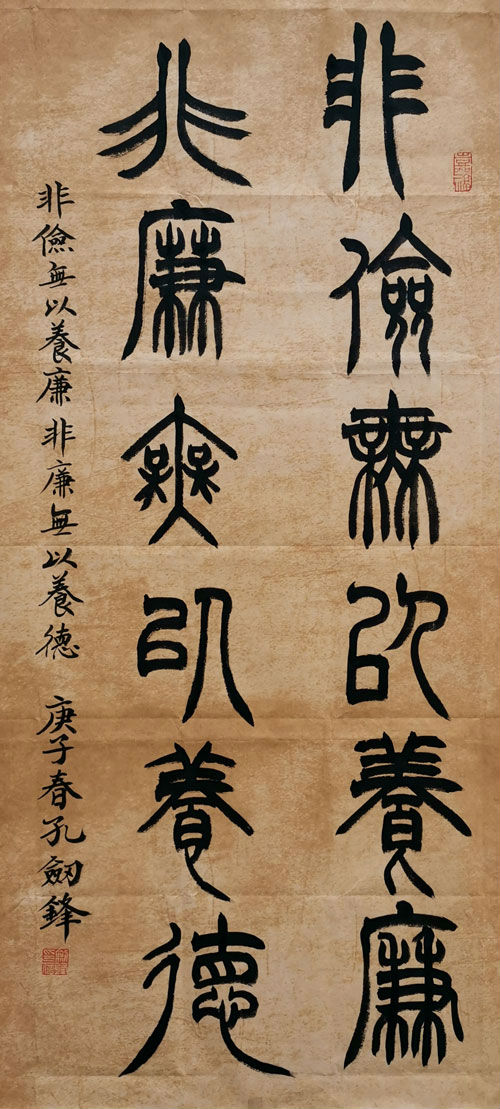 非儉無以養廉
非廉無以養德
非儉無以養廉非廉無以養德 庚子春孔劍鋒